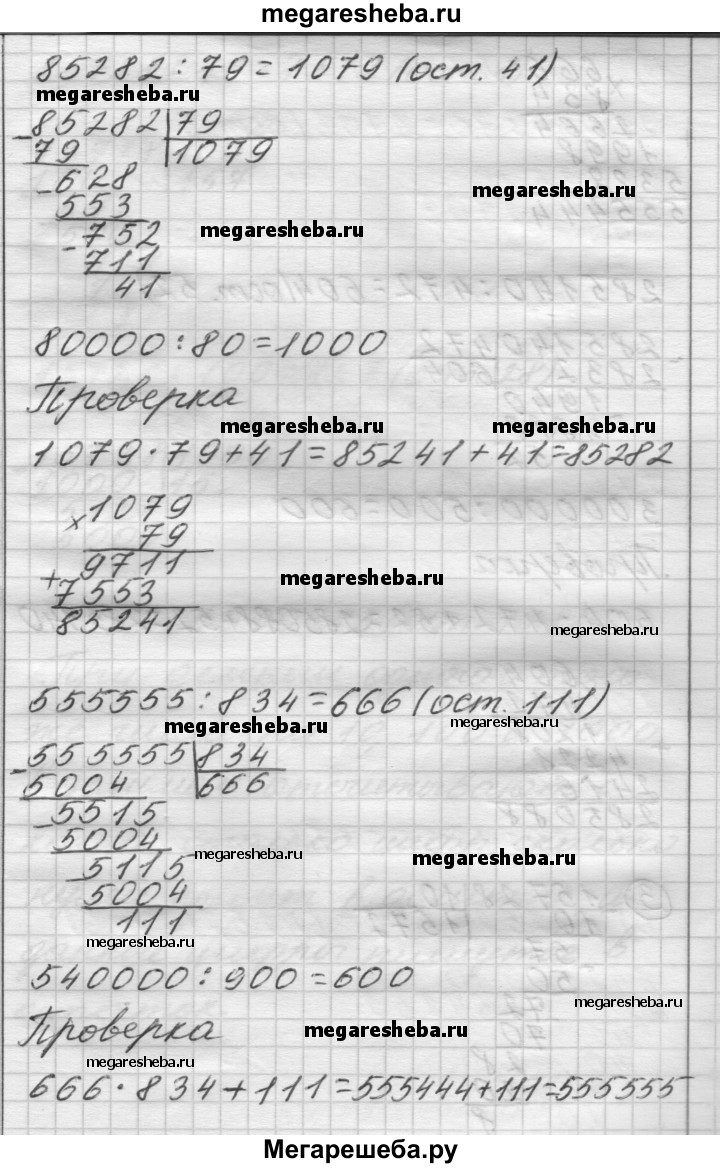 megaresheba.ru
85282 : 79 = 1079 (ост. 41)
megaresheba.ru
- 85282 | 79
79 | 1079
megaresheba.ru
- 628
553
megaresheba.ru
- 752
711
41
80000 : 80 = 1000
Проверка
megaresheba.ru
megaresheba.ru
1079 · 79 + 41 = 85241 + 41 = 85282
× 1079
79
9711
megaresheba.ru
+ 7553
85241
megaresheba.ru
555555 : 834 = 666 (ост. 111)
megaresheba.ru
megaresheba.ru
- 555555 | 834
5004 | 666
- 5515
5004
megaresheba.ru
megaresheba.ru
- 5115
5004
111
megaresheba.ru
540000 : 900 = 600
megaresheba.ru
Проверка
megaresheba.ru
megaresheba.ru
666 · 834 + 111 = 555444 + 111 = 555555
Мегарешеба.ру